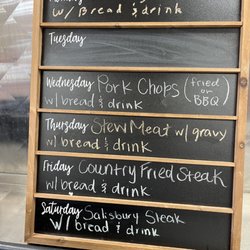 w/ Bread & drink
Tuesday
Wednesday Pork Chops (fried or BBQ)
w/ bread & drink
Thursday Stew Meat w/ gravy
w/ bread & drink
Friday Country Fried Steak
w/ bread & drink
Saturday Salisbury Steak
w/ bread & drink